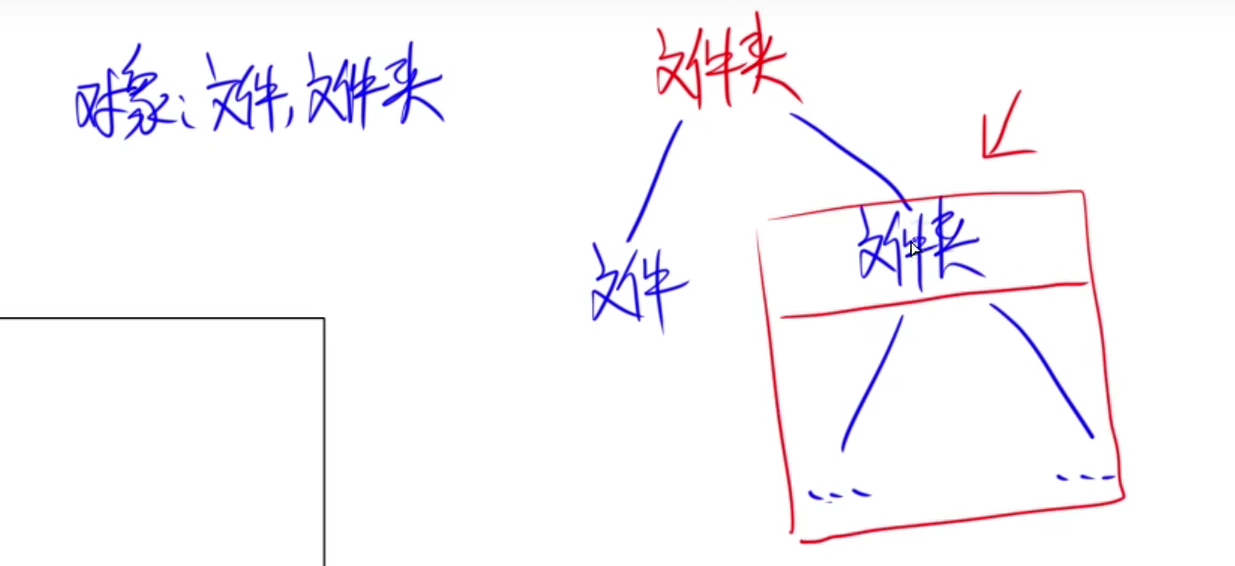 对象：文件，文件夹
文件夹
文件夹
文件